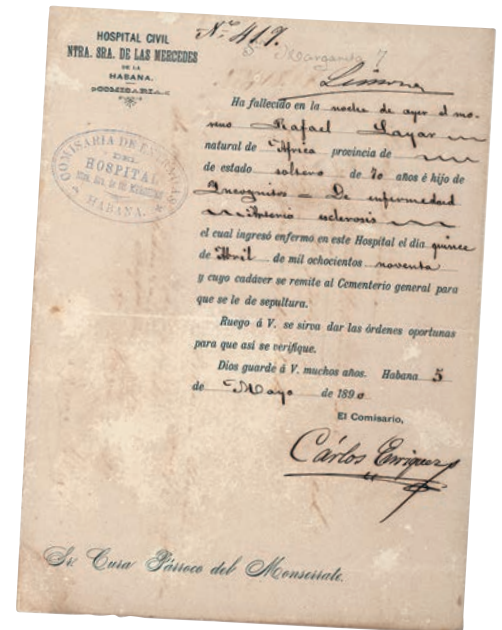 HOSPITAL CIVIL
NTRA. SRA. DE LAS MERCEDES
DE LA
HABANA.
COMISARIA
Nº 419.
Margarita 7
Limosna
COMISARIA DE ENTRADAS
DEL
HOSPITAL
NTRA. SRA. DE LAS MERCEDES
HABANA.
Ha fallecido en la noche de ayer el mo-
reno Rafael Layar
natural de Africa provincia de
de estado soltero de 70 años é hijo de
Incognitos - De enfermedad
Arterio esclerosis
el cual ingresó enfermo en este Hospital el dia quince
de Abril de mil ochocientos noventa
y cuyo cadáver se remite al Cementerio general para
que se le de sepultura.
Ruego á V. se sirva dar las órdenes oportunas
para que así se verifique.
Dios guarde á V. muchos años. Habana 5
de Mayo de 1890
El Comisario,
Cárlos Enriquez
Sr. Cura Párroco del Monserrate.